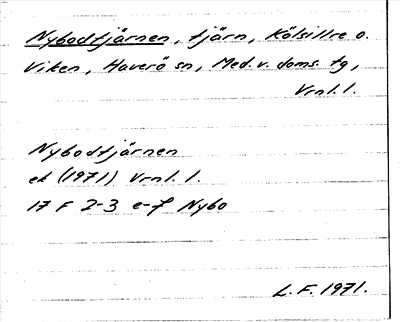 Nybodtjärnen, tjärn, Kölsillre o.
Viken, Haverö sn, Med. v. doms. tg,
Vrnl. l.
Nybodtjärnen
ek (1971) Vrnl. l.
17 F 2-3 e-f Nybo
L. F. 1971.